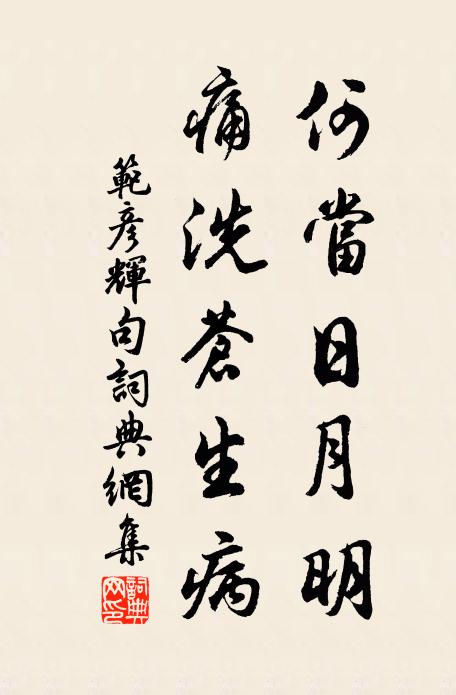 何當日月明
痛洗蒼生病
範彥輝句詞典網集
詞典網印